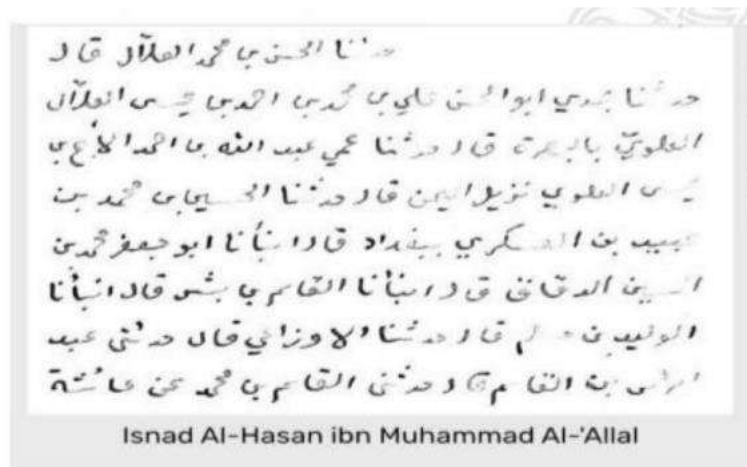 حدثنا الحسن بن محمد العلال قال
حدثنا جدي ابو الحسن علي بن محمد بن احمد بن عيسى العلال
العلوي بالبصرة قال حدثنا عمي عبد الله بن احمد الأبح بن
عيسى العلوي نزيل اليمن قال حدثنا الحسين بن محمد بن
عبيد بن العسكري ببغداد قال انبأنا ابو جعفر محمد بن
الدقاق قال انبأنا القاسم بن بشر قال انبأنا
الوليد بن مسلم قال حدثنا الاوزاعي قال حدثني عبد
بن القاسم قال حدثني القاسم بن محمد عن عائشة
Isnad Al-Hasan ibn Muhammad Al-'Allal